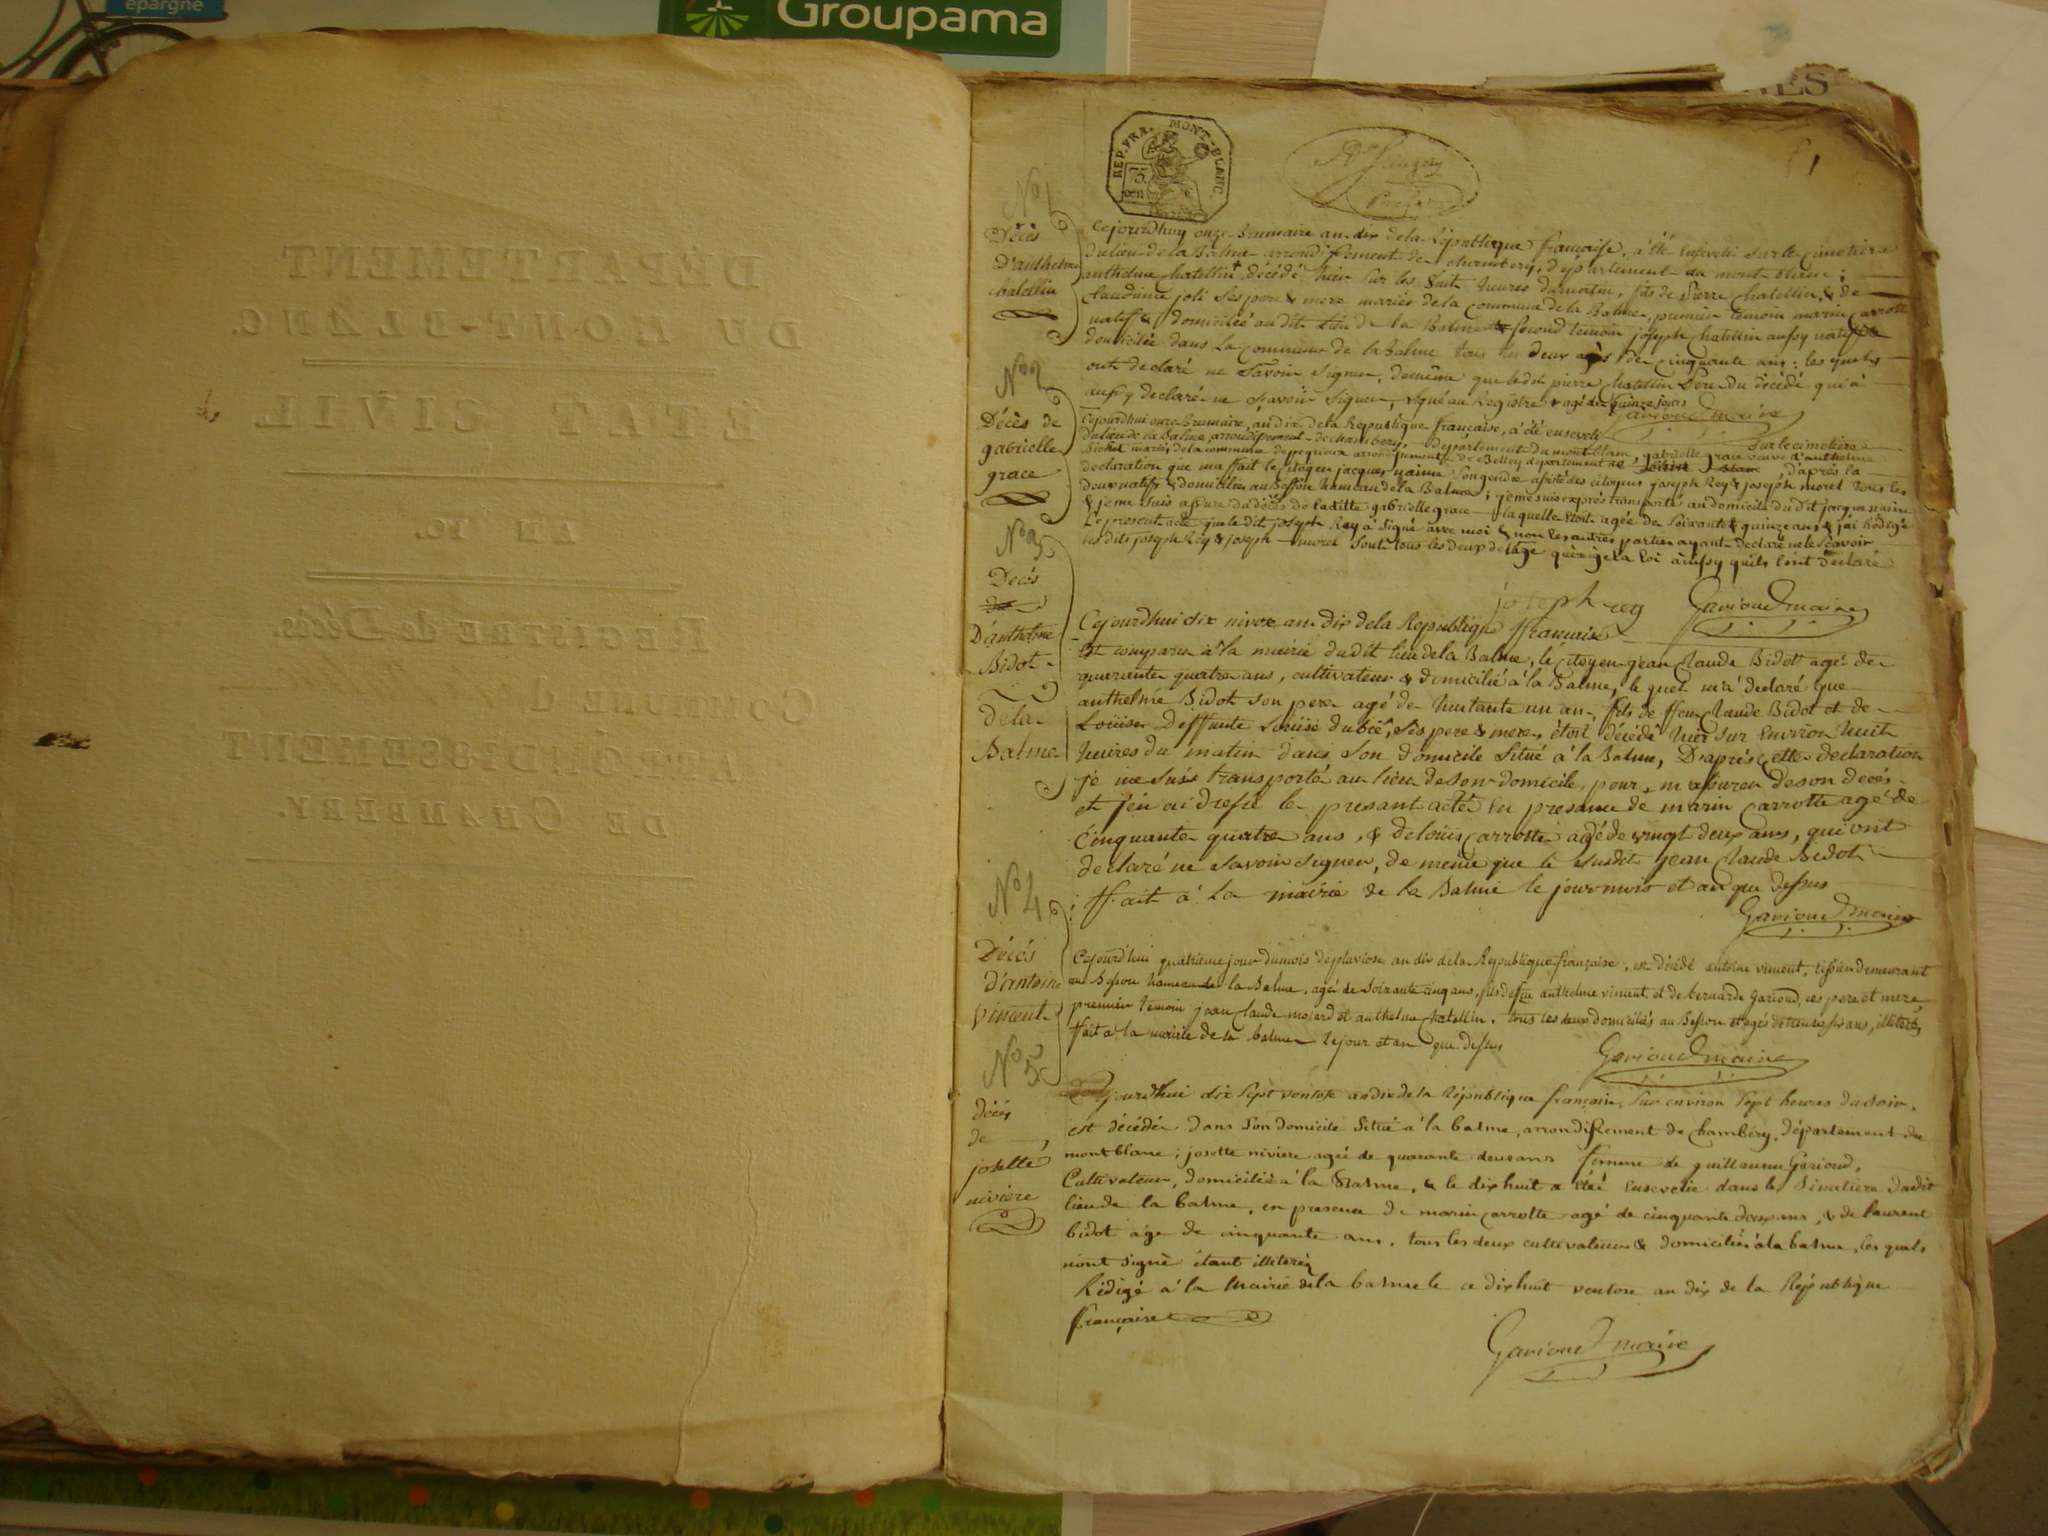 épargne
Groupama
DÉPARTEMENT
DU MONT-BLANC.
ETAT CIVIL
AN 10.
REGISTRE de Décès.
COMMUNE d
ARRONDISSEMENT
DE CHAMBERY.
REP. FRA. MONT-BLANC.
75
cen
1
No 1
Décès
D'anthelme
chatellin
Cejourdhuy onze brumaire an dix de la République française, a été enseveli sur le cimetiere
du lieu de la Balme arrondissement de chambery, département du mont blanc;
anthelme chatellin décédé hier sur les huit heures du matin, fils de Pierre chatellin & de
Claudine joli ses pere & mere mariés de la commune de la Balme, premier temoin marin carrotte
natif & domicilié au dit lieu de la Balme & second temoin joseph chatellin aussy natif &
domicilié dans la commune de la Balme tous les deux agés de cinquante ans: lesquels
ont declaré ne savoir signer, de même que ledit pierre chatellin Pere du décédé qui a
aussy declaré ne sçavoir signer, agé de quinze jours
Garioud maire
No 2
Décès de
gabrielle
grace
Cejourdhui onze brumaire, an dix de la République française, a été enseveli sur le cimetiere
du lieu de la Balme, arrondissement de chambery, département du mont blanc, gabrielle grace veuve d'anthelme
mariés de la commune de arrondissement de Belley département de d'après la
declaration que m'a fait le citoyen jacques naime son gendre assisté des citoyens joseph Rey & joseph moret tous les
deux natifs & domiciliés au Besson hameau de la Balme; je me suis exprès transporté au domicile du dit jacques naime
& je me suis assuré du décès de ladite gabrielle grace laquelle étoit agée de soixante & quinze ans & j'ai rédigé
le present acte que le dit joseph Rey a signé avec moi & non les autres parties ayant declaré ne le sçavoir
les dits joseph Rey & joseph moret sont tous les deux de l'âge qu'exige la loi ainsy qu'ils l'ont declaré
joseph rey
Garioud maire
No 3
Decès
D'anthelme
Bidot
de la
Balme
Cejourdhui dix nivose an dix de la République francaise
Est comparu à la mairie du dit lieu de la Balme, le citoyen jean Claude Bidot agé de
quarante quatre ans, cultivateur & domicilié à la Balme, lequel m'a declaré que
anthelme Bidot son pere agé de huitante un an, fils de ffeu Claude Bidot et de
Louise Deffunte Louise ses pere & mere, étoit décédé hier sur environ huit
heures du matin dans son domicile situé à la Balme, D'après cette declaration
je me suis transporté au lieu de son domicile, pour m'assurer de son decès
et j'en ai dressé le present acte en presence de marin carrotte agé de
cinquante quatre ans, & de louis carrotte agé de vingt deux ans, qui ont
declaré ne savoir signer, de même que le susdit jean Claude Bidot
ffait à la mairie de la Balme le jour mois et an que dessus
Garioud maire
No 4
Décès
d'antoine
Vincent
Cejourd'hui quatrieme jour du mois de pluviose an dix de la République française, est décédé antoine vincent, tissier demeurant
au Besson hameau de la Balme, agé de soixante cinq ans, fils de feu anthelme vincent, et de bernarde Garioud, ses pere et mere,
premier temoin jean Claude et anthelme Chatellin, tous les deux domiciliés au Besson et agés de trente six ans, illeterés,
ffait à la mairie de la balme le jour et an que dessus
Garioud maire
No 5
décès
de
josette
niviere
Cejourdhui dix sept ventose an dix de la République française, sur environ sept heures du soir,
est décédée dans son domicile situé à la balme, arrondissement de Chambéry, département du
mont blanc; josette niviere agée de quarante deux ans femme de guillaume Garioud,
Cultivateur, domicilié à la Balme, & le dix huit a été ensevelie dans le Simetiere dudit
lieu de la balme, en presence de marin carrotte agé de cinquante deux ans, & de laurent
bidot age de cinquante ans, tous les deux cultivateurs & domiciliés à la balme, les quels
n'ont signé étant illeterés
Rédigé à la Mairie de la balme le ce dix huit ventose an dix de la République
française
Garioud maire